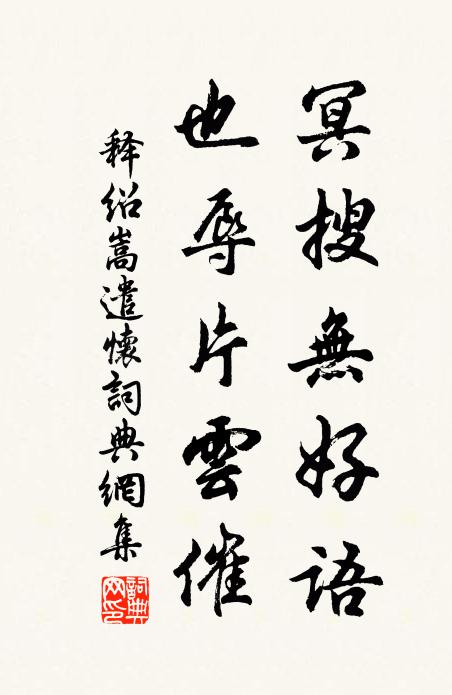 冥搜無好語
也辱片雲催
释绍嵩遣懷詞典網集
詞典網印